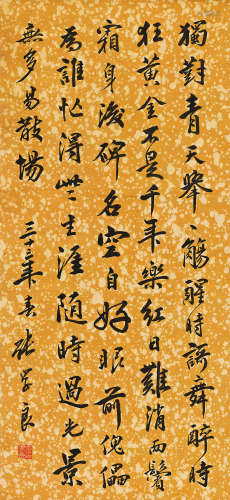 獨對青天舉一觴醒時謌舞醉時
狂黃金不是千年樂紅日難消兩鬢
霜身後碑名空自好眼前傀儡
為誰忙得些生涯隨時過光景
無多易散場 三十三年春 張學良